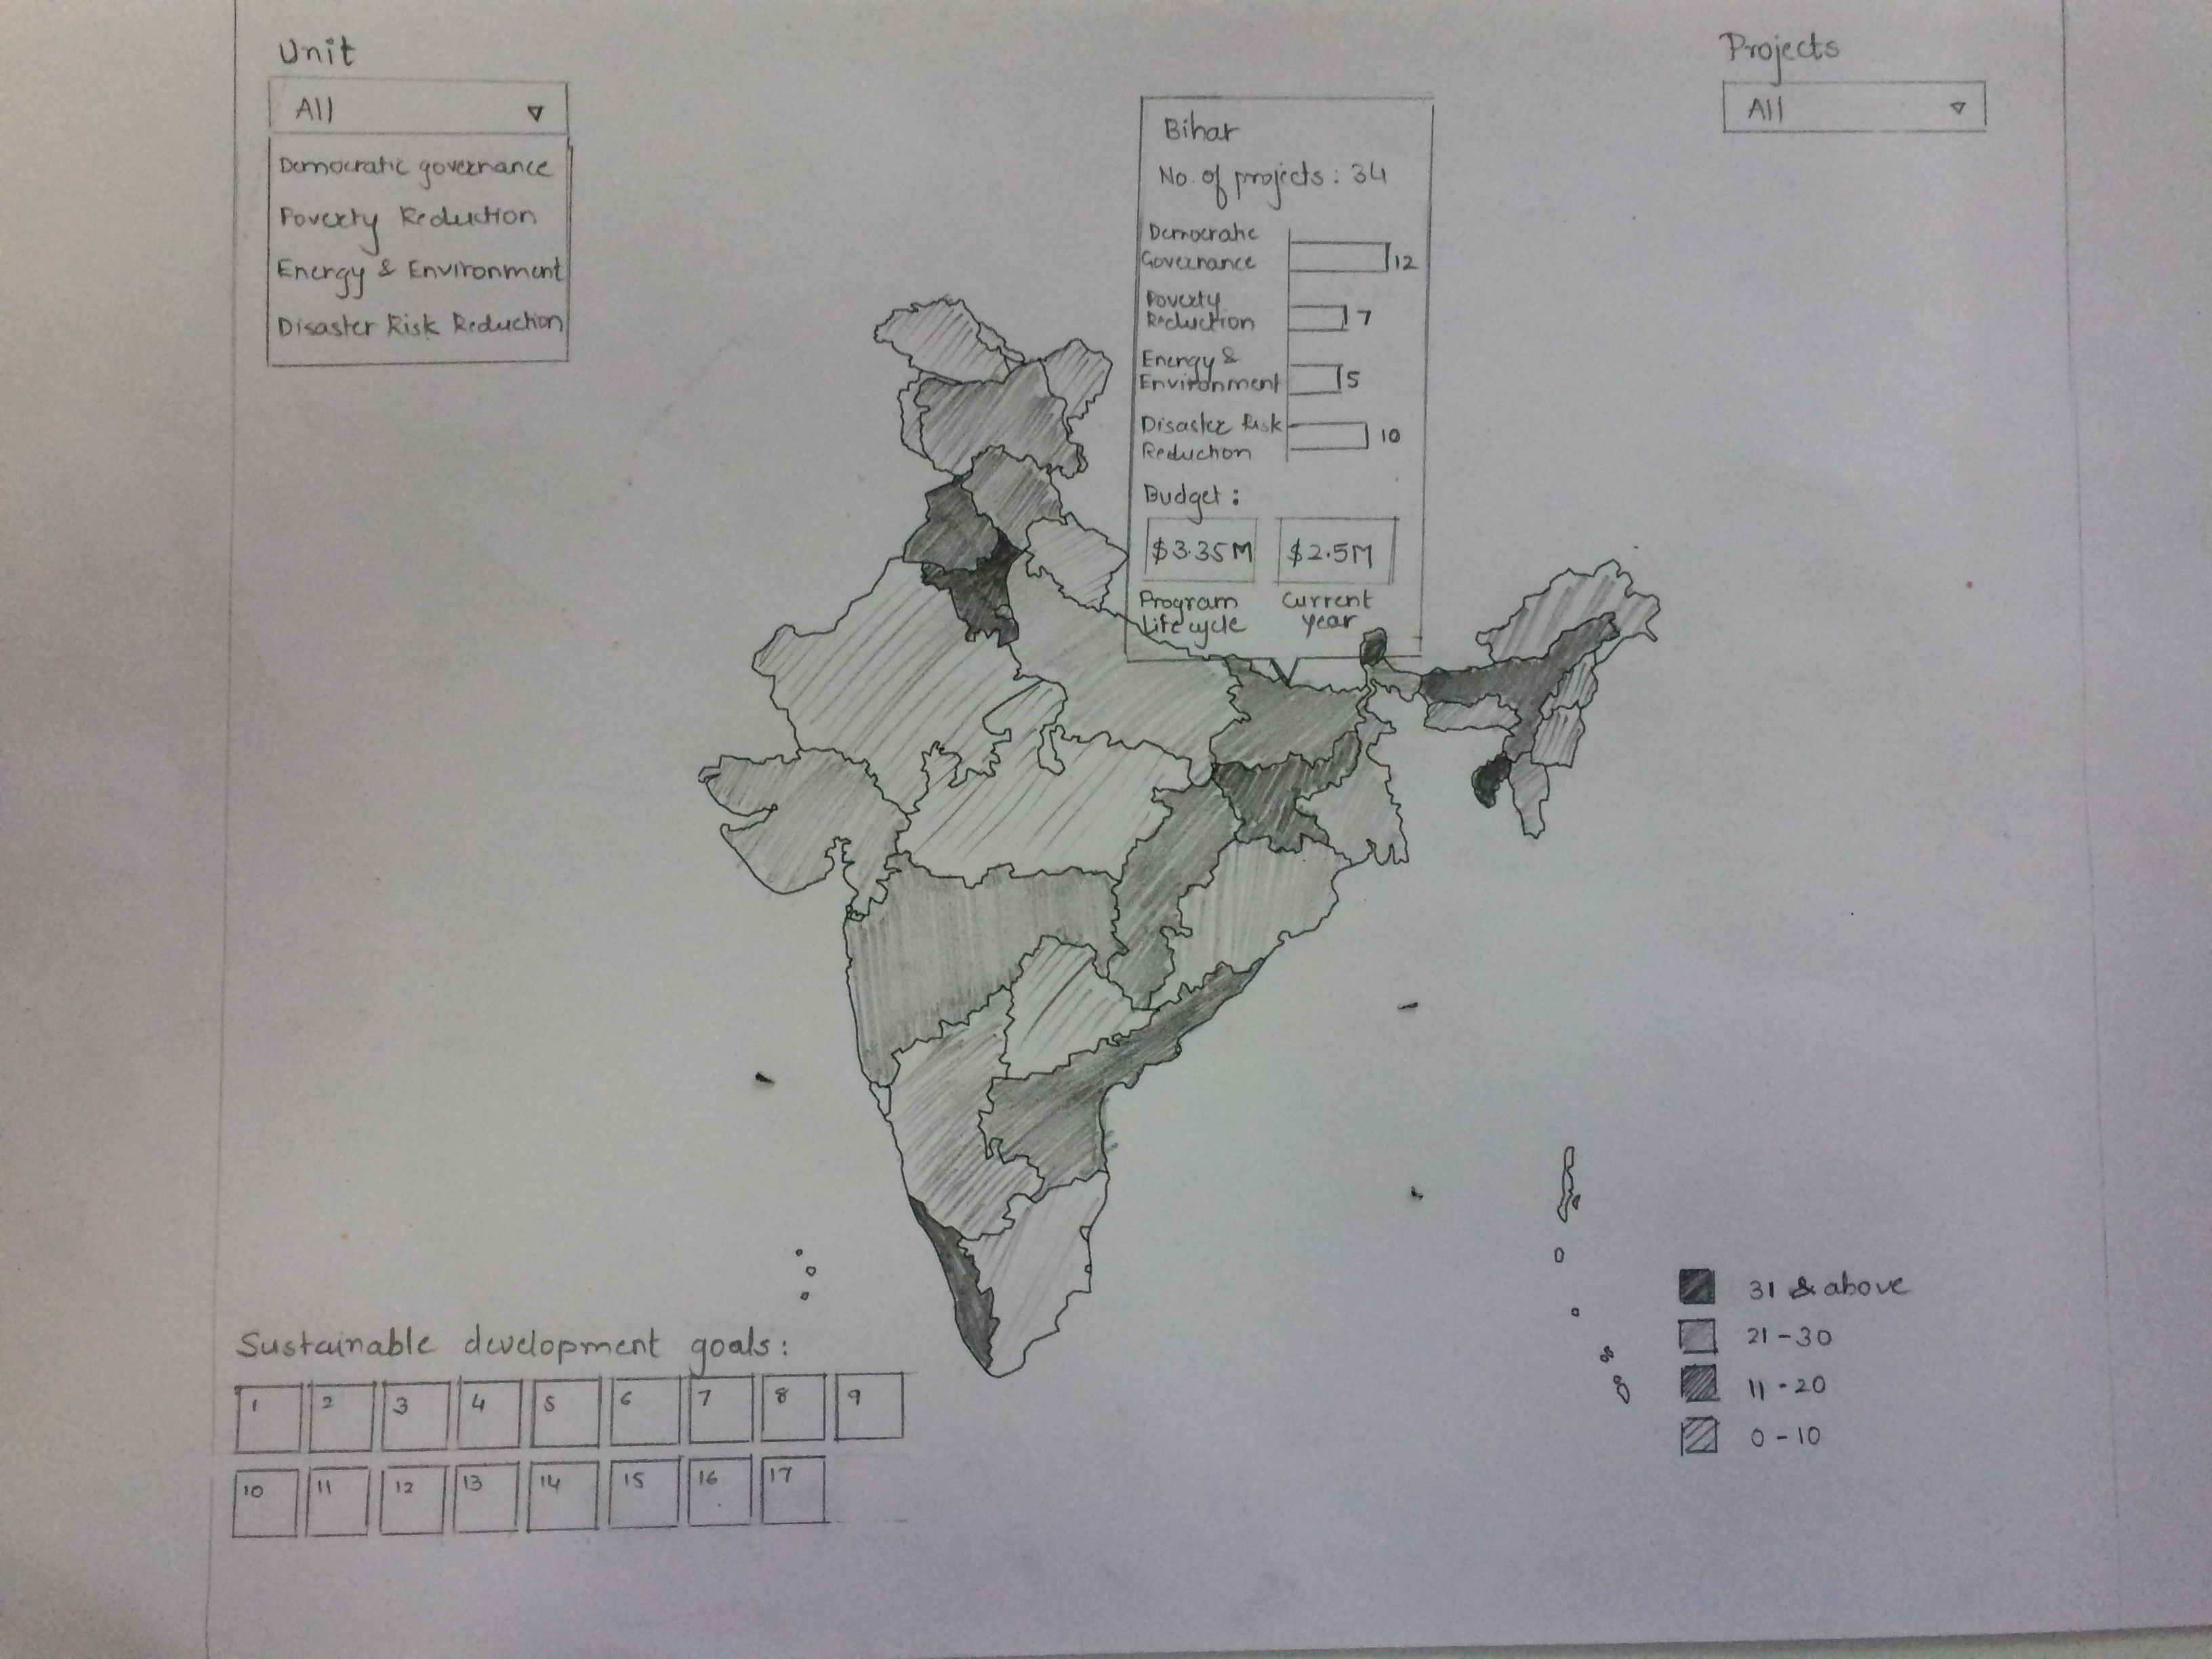 Unit
All
Democratic governance
Poverty Reduction
Energy & Environment
Disaster Risk Reduction
Projects
All
Bihar
No. of projects : 34
Democratic
Governance
12
Poverty
Reduction
7
Energy &
Environment
5
Disaster Risk
Reduction
10
Budget :
$3.35M $2.5M
Program Current
Life cycle year
Sustainable development goals :
1 2 3 4 5 6 7 8 9
10 11 12 13 14 15 16 17
31 & above
21-30
11-20
0-10